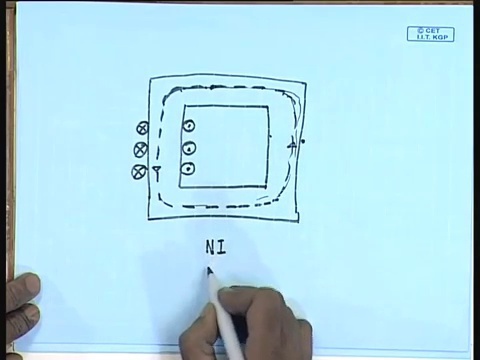 © CET
I.I.T. KGP
NI